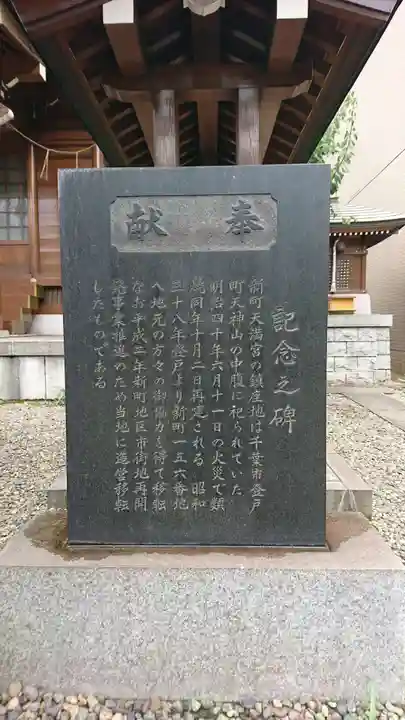 奉献
記念之碑
新町天満宮の鎮座地は千葉市登戸
町天神山の中腹に祀られていた
明治四十年六月十一日の火災で類
焼同年十月二日再建される 昭和
三十八年登戸より新町一五六番地
へ地元の方々の御協力を得て移転
なお平成二年新町地区市街地再開
発事業推進のため当地に造営移転
したものである